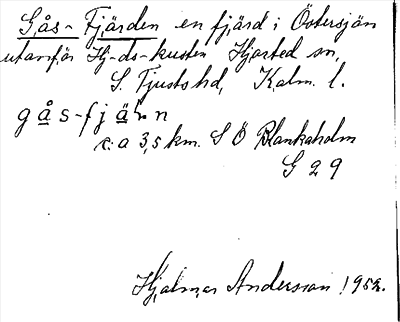 Gås-Fjärden en fjärd i Östersjön
utanför Hj-ds-kusten Hjorted sn,
S. Tjusts hd, Kalm. l.
gås-fjä̱ḷn
c:a 3,5 km. S Ö Blankaholm
G 29
Hjalmar Andersson 1952.